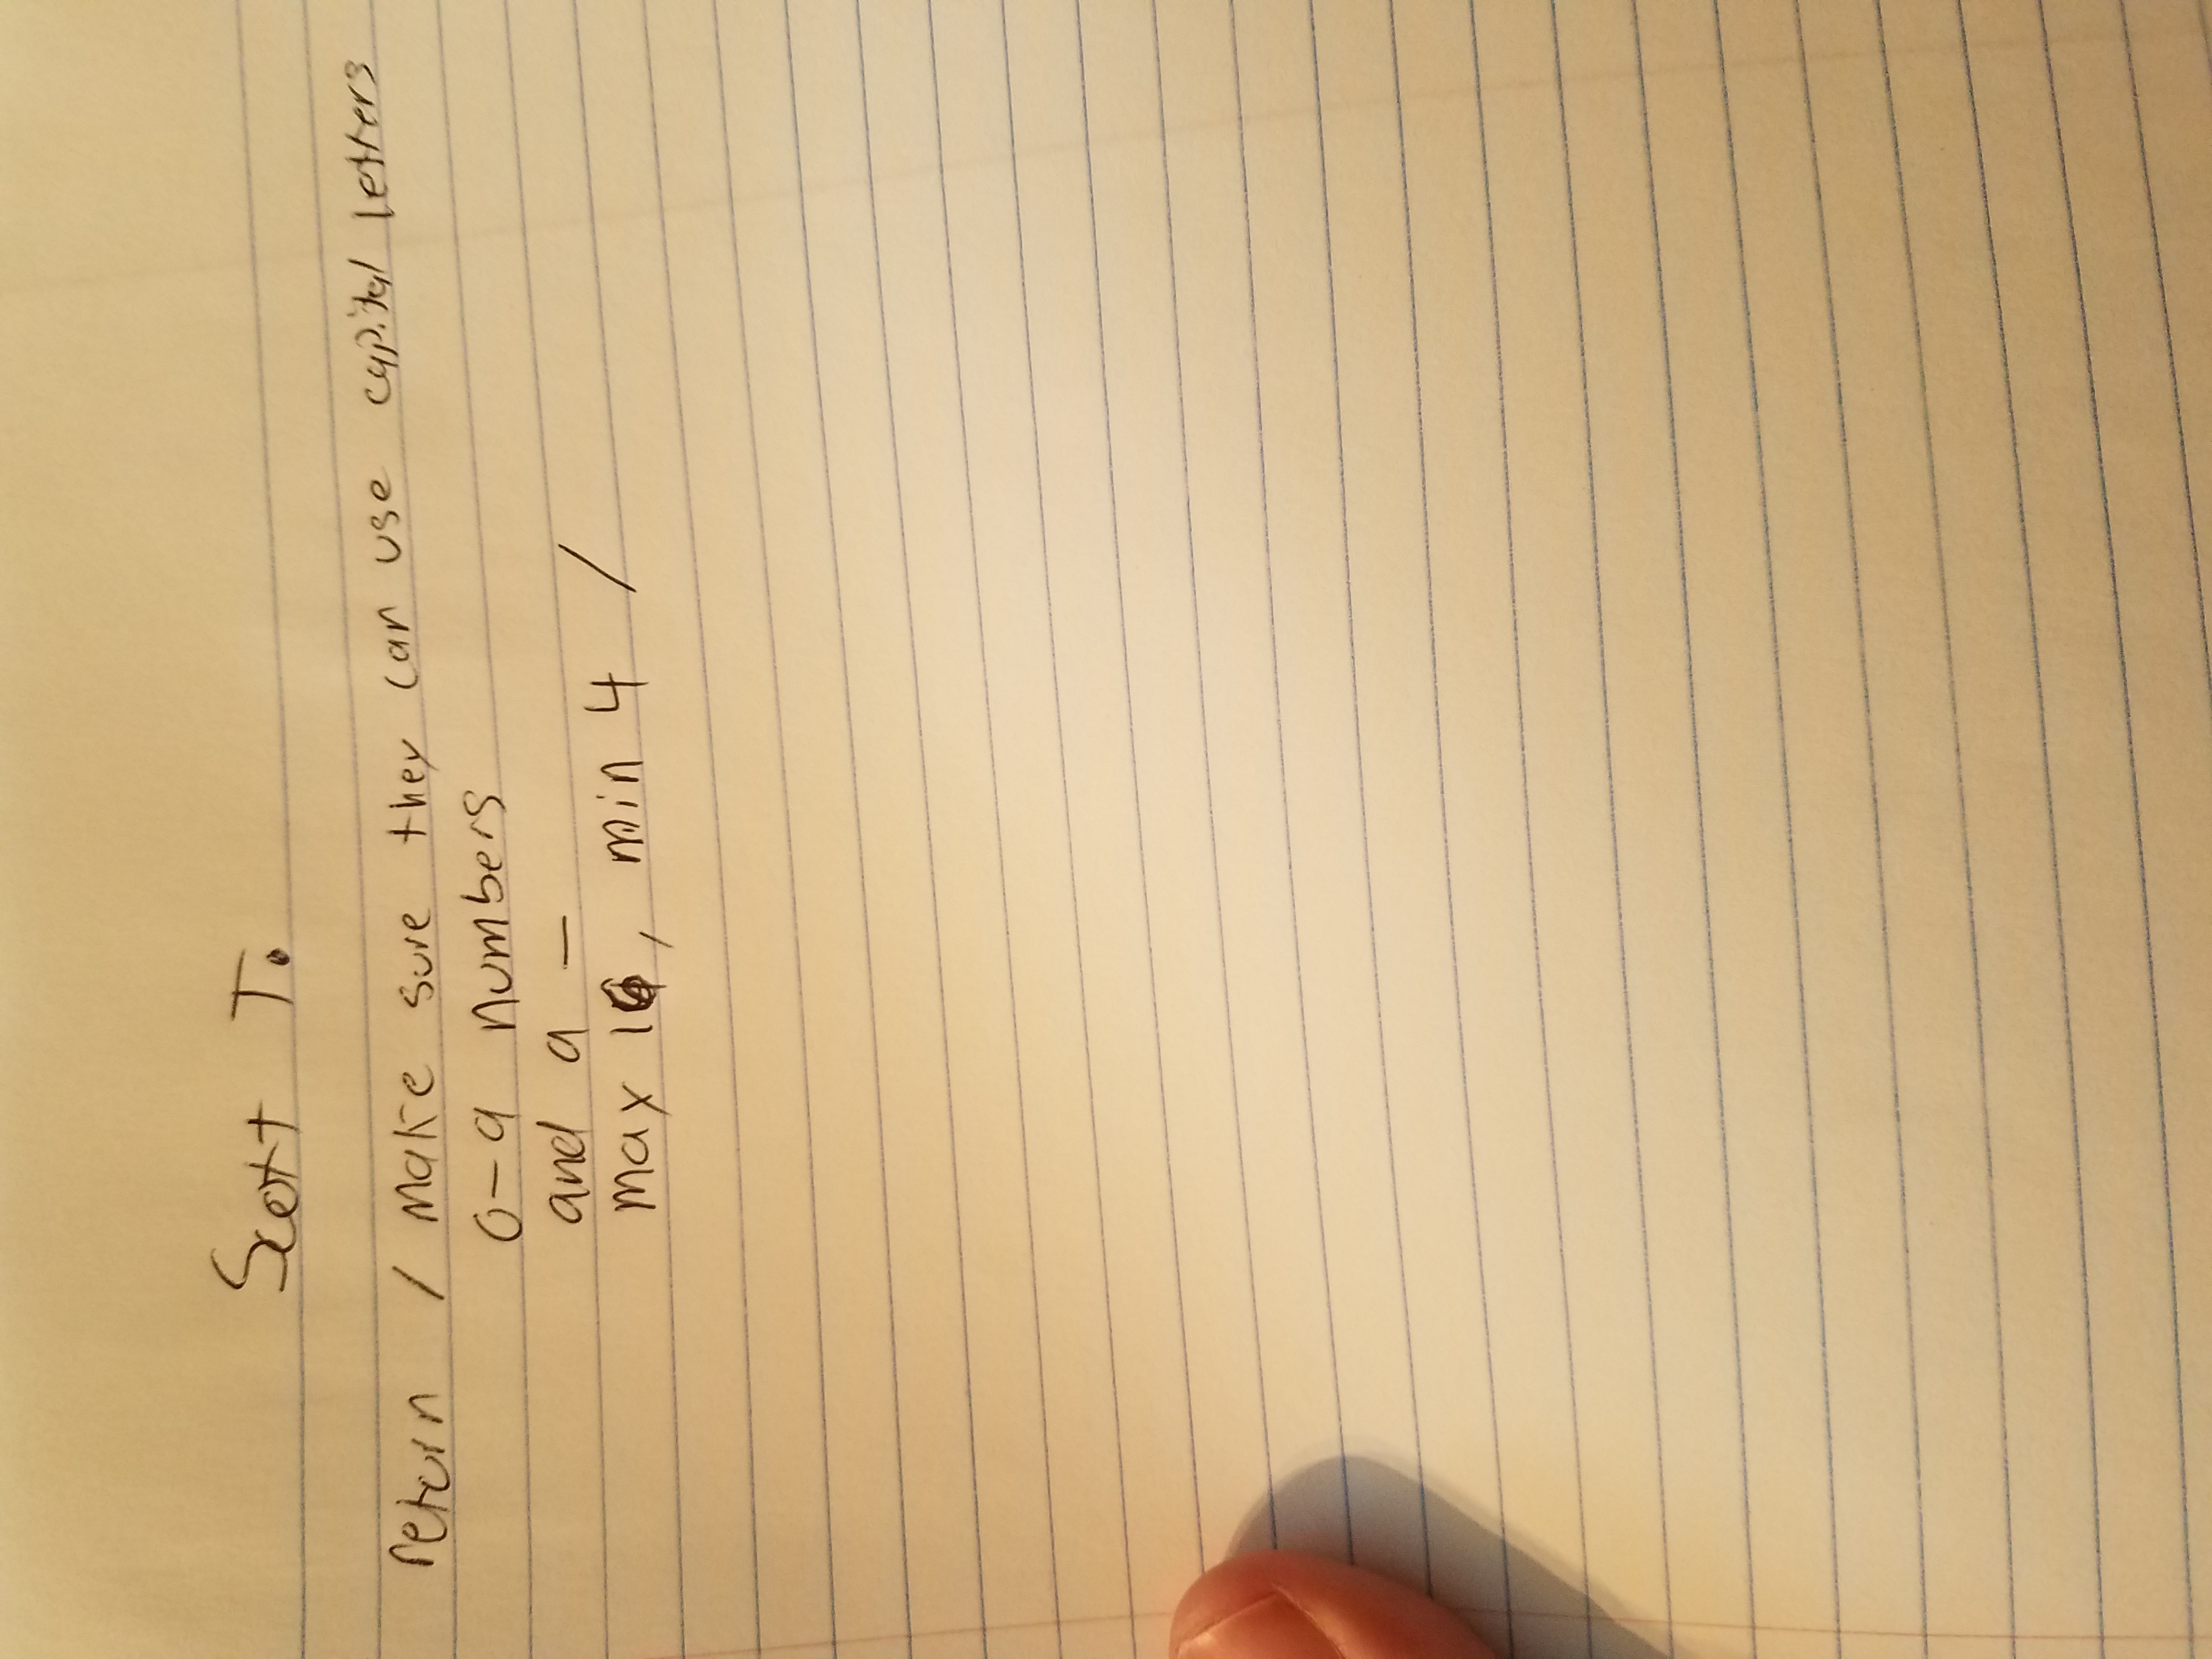 Scott T.
return / make sure they can use capital letters
0-9 numbers
and a —
max 16, min 4 /